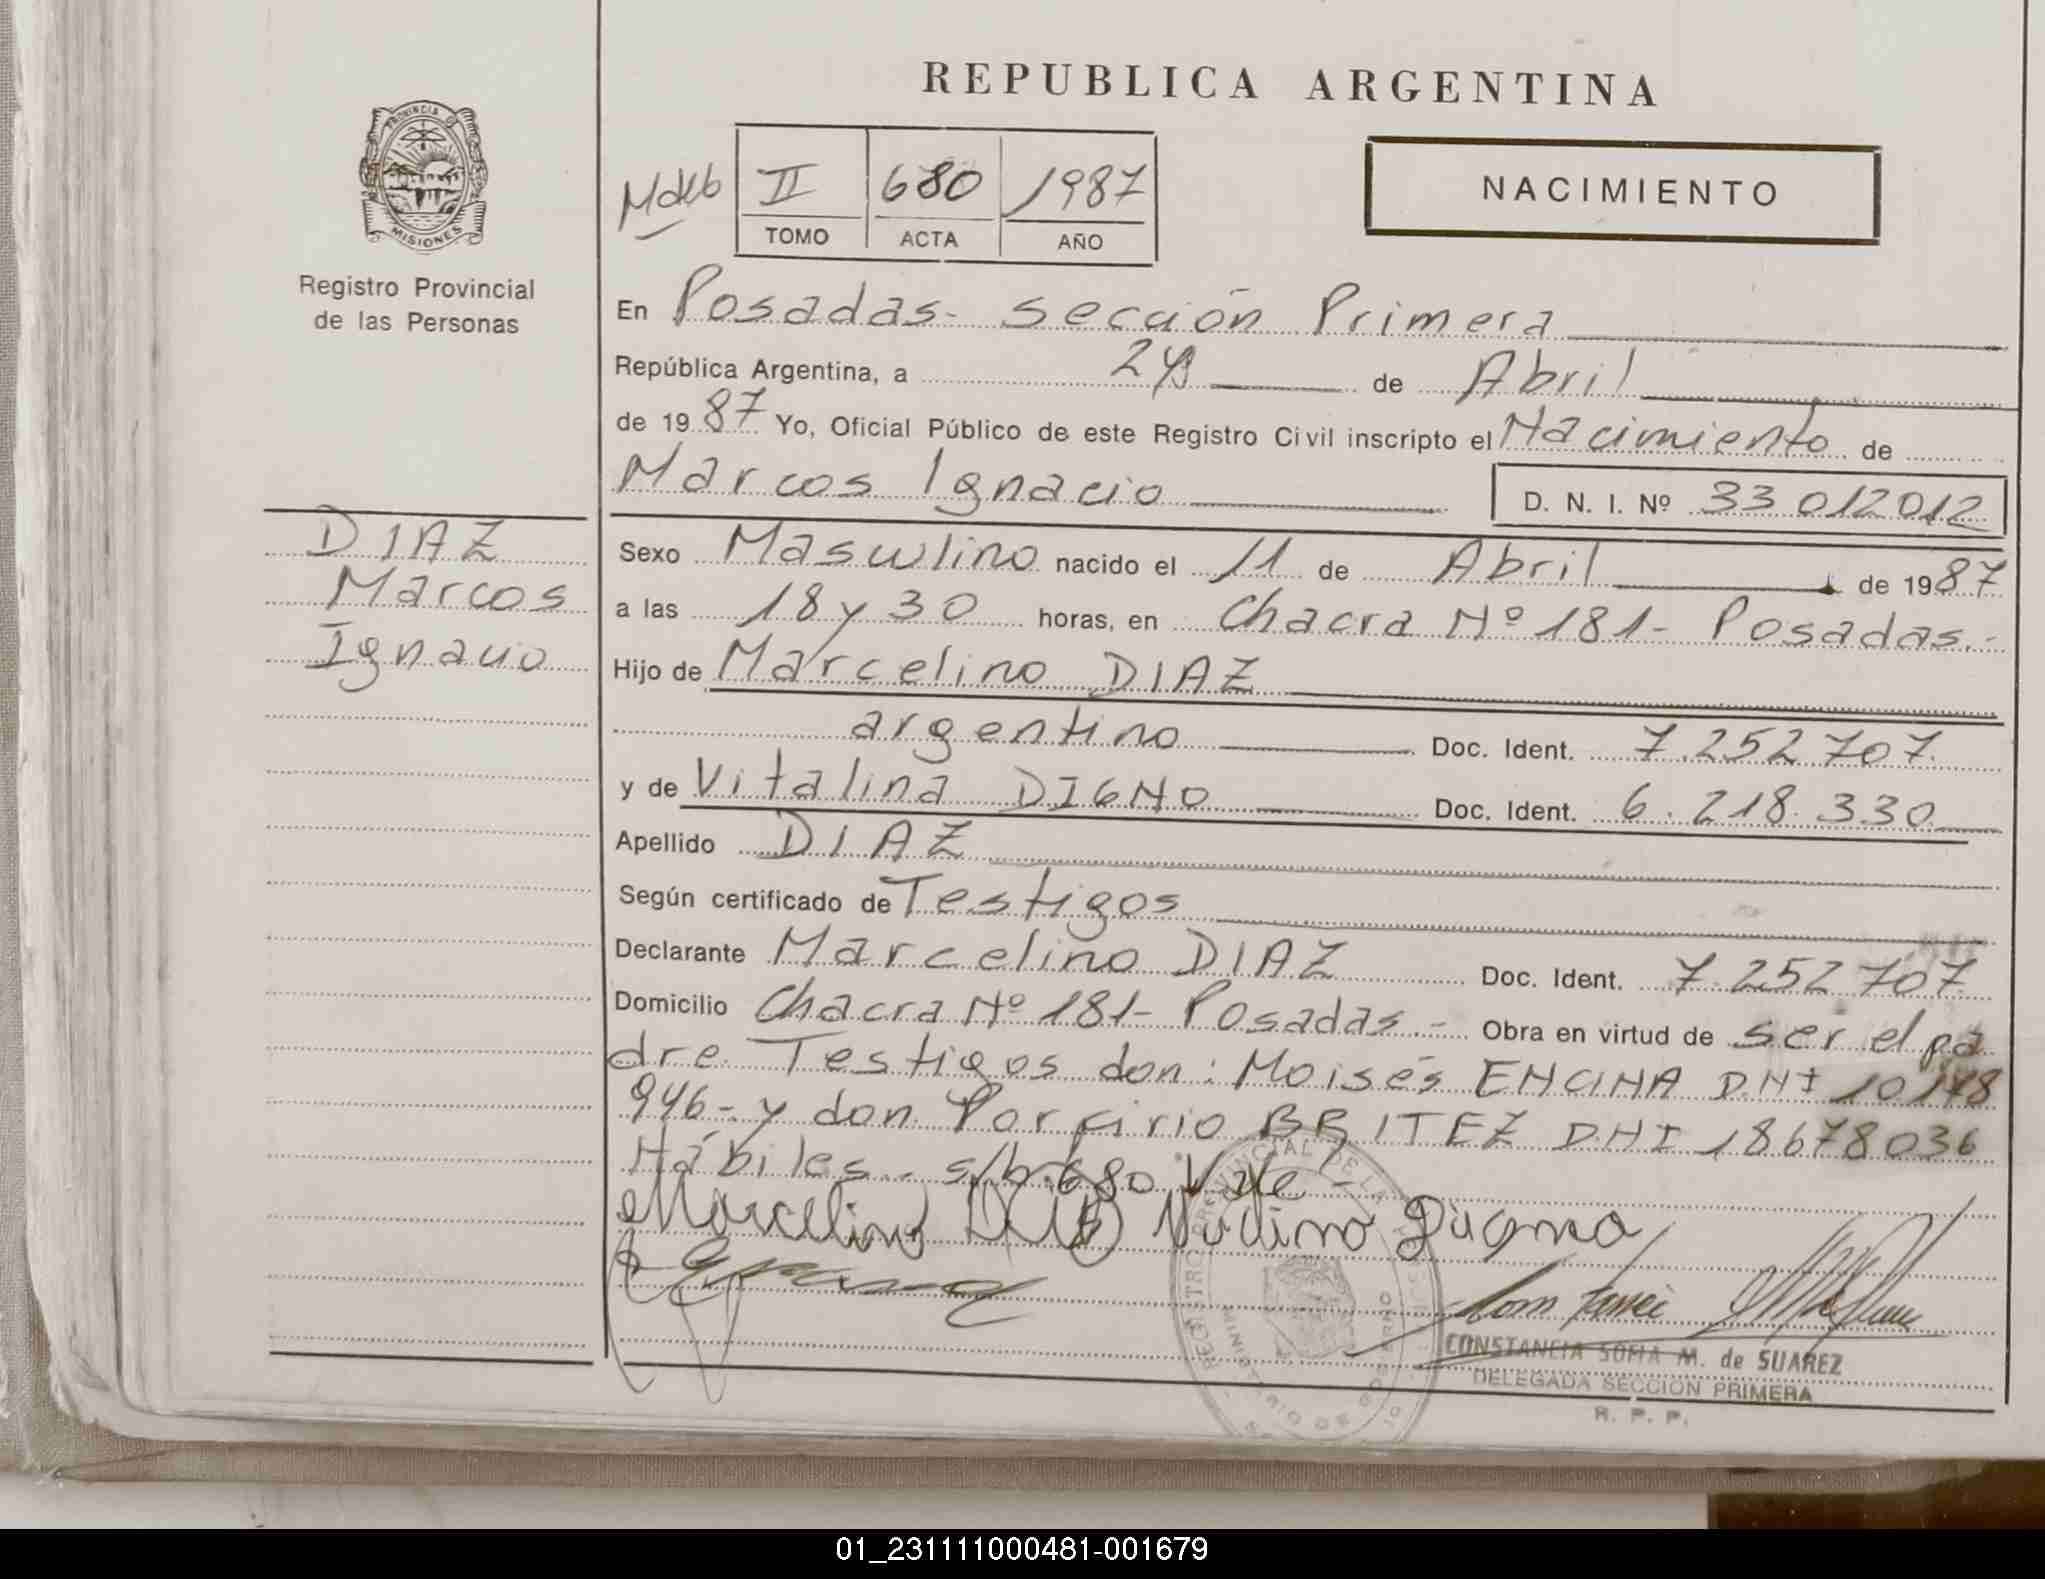 REPUBLICA ARGENTINA
PROVINCIA DE
MISIONES
Registro Provincial
de las Personas
II 680 1987
TOMO ACTA AÑO
NACIMIENTO
En Posadas- sección Primera
República Argentina, a de Abril
de 1987 Yo, Oficial Público de este Registro Civil inscripto el Nacimiento de
Marcos Ignacio D. N. I. Nº 33 012012
DIAZ
Marcos
Ignacio
Sexo Masculino nacido el 11 de Abril de 1987
a las 18 y 30 horas, en Chacra Nº 181- Posadas.-
Hijo de Marcelino DIAZ
argentino Doc. Ident. 7.252 707.
y de Vitalina DIGNO Doc. Ident. 6.218.330
Apellido DIAZ
Según certificado de Testigos
Declarante Marcelino DIAZ Doc. Ident. 7.252 707
Domicilio Chacra Nº 181- Posadas.- Obra en virtud de ser el pa
dre. Testigos don: Moisés ENCINA D.N.I 10178
946- y don Porfirio BRITEZ DNI 18678036
Hábiles.- s/b.680 Vale-
Marcelino
CONSTANCIA SOFIA M. de SUAREZ
DELEGADA SECCION PRIMERA
R. P. P.
01_231111000481-001679